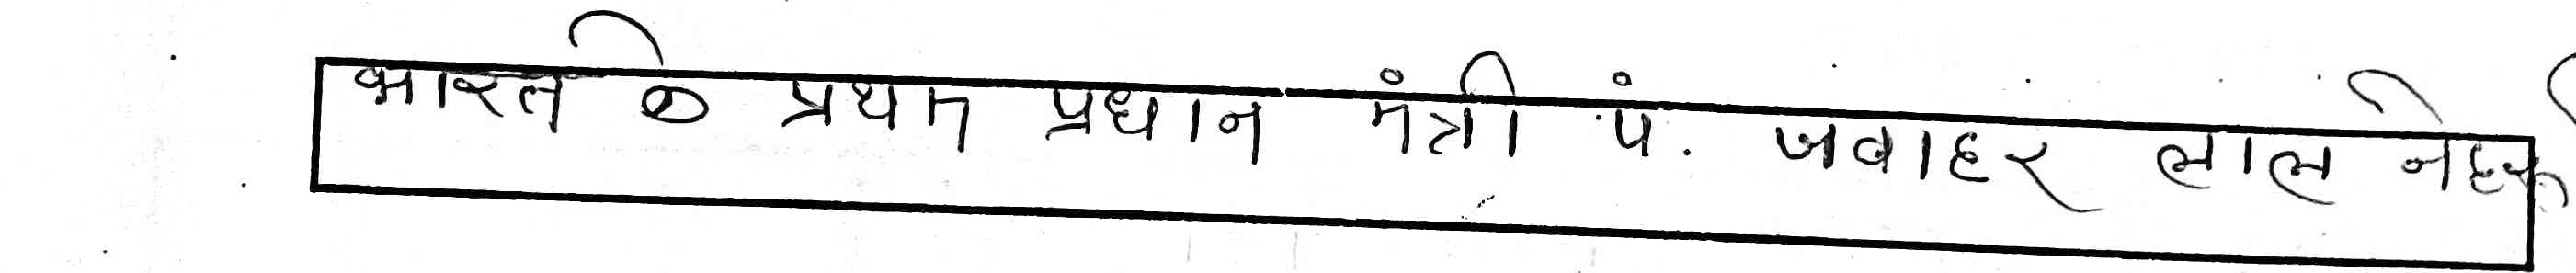 भारत के प्रथम प्रधान मंत्री पं. जवाहर लाल नेहरू